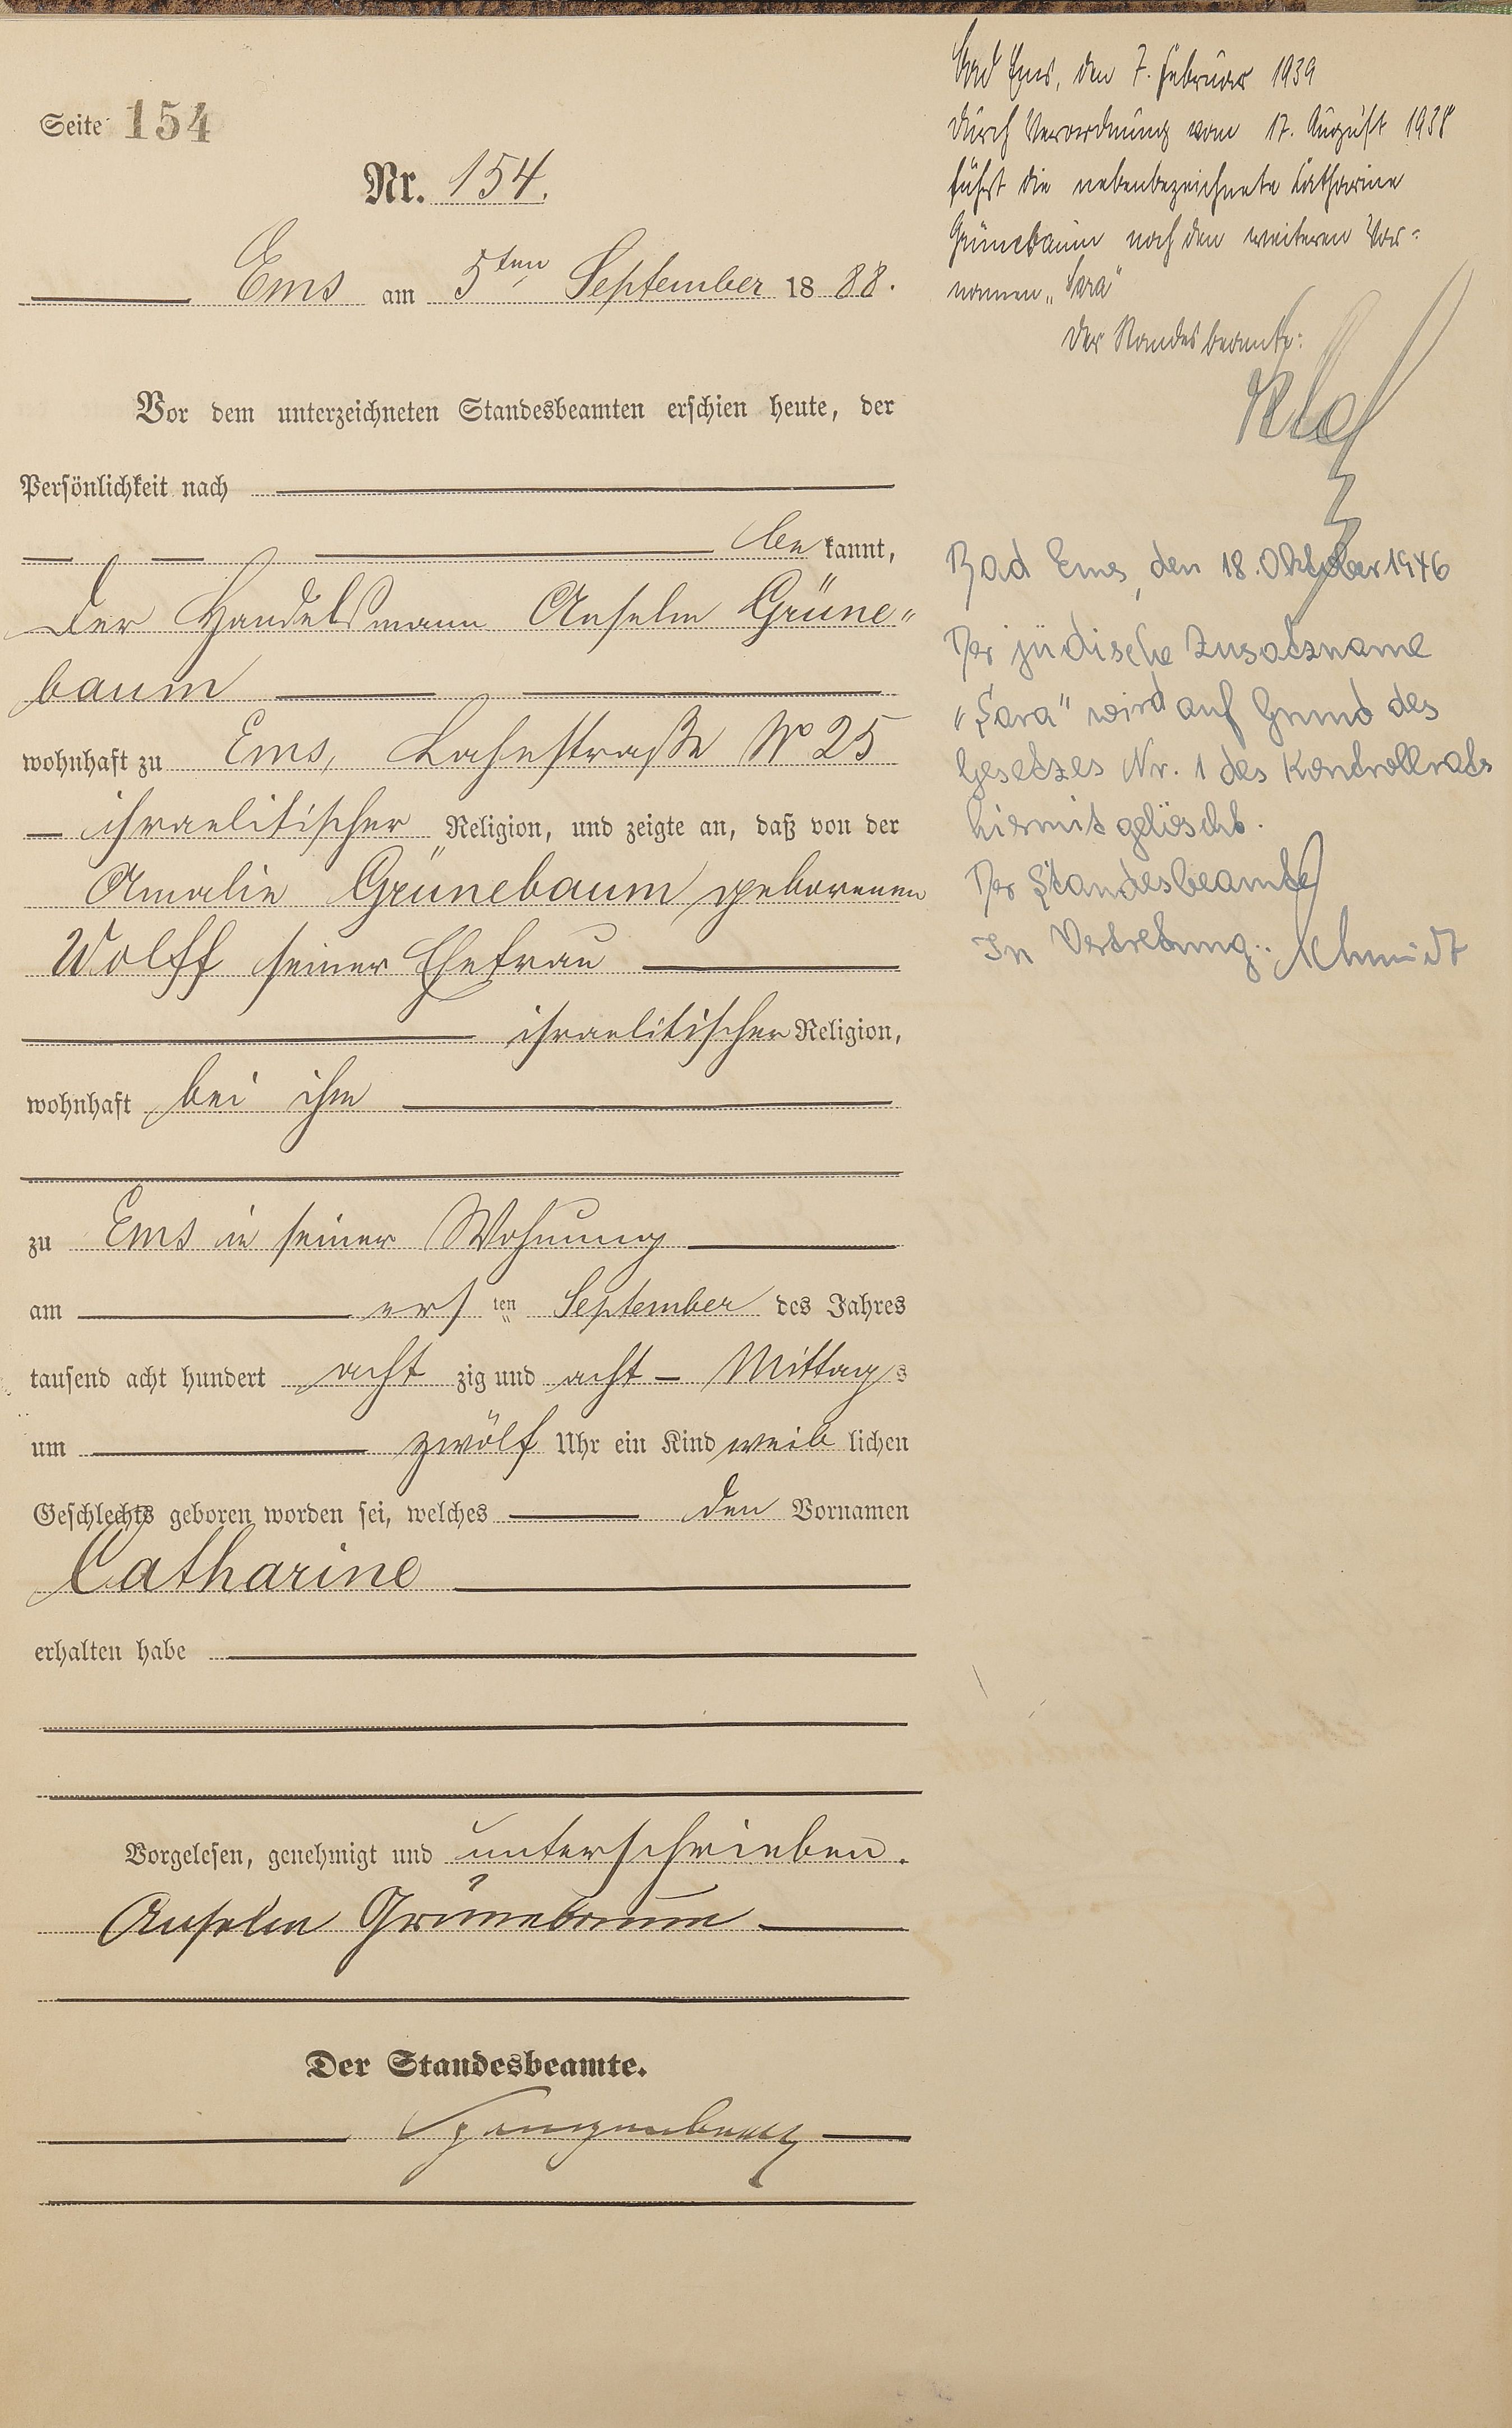 Seite 154
Nr. 154.
Ems am 5ten September 18 88.
Vor dem unterzeichneten Standesbeamten erschien heute, der
Persönlichkeit nach
be kannt,
der Handelsmann Anselm Grüne„
baum
wohnhaft zu Ems, Lahnstraße No 25
israelitischer Religion, und zeigte an, daß von der
Amalie Grünebaum geborenen
Wolff seiner Ehefrau
israelitischer Religion,
wohnhaft bei ihm
zu Ems in seiner Wohnung
am ers ten September des Jahres
tausend acht hundert acht zig und acht Mittags
um zwölf Uhr ein Kind weib lichen
Geschlechts geboren worden sei, welches den Vornamen
Catharine
erhalten habe
Vorgelesen, genehmigt und unterschrieben.
Anselm Grünebaum
Der Standesbeamte.
Spangenberg
Bad Ems, den 7. Februar 1939
Durch Verordnung vom 17. August 1938
führt die nebenbezeichnete Catharine
Grünebaum noch den weiteren Vor=
namen „Sara"
Der Standesbeamte:
Bad Ems, den 18. Oktober 1946
Der jüdische Zusatzname
"Sara" wird auf Grund des
Gesetzes Nr. 1 des Kontrollrats
hiermit gelöscht.
Der Standesbeamte
In Vertretung: Schmidt